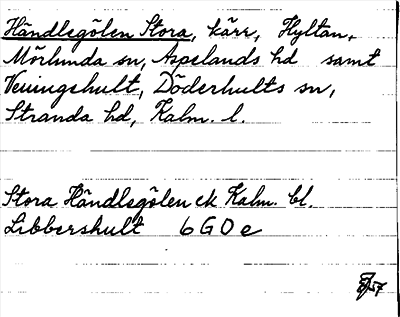 Händlegölen Stora, kärr, Hyltan,
Mörlunda sn, Aspelands hd samt
Veningehult, Döderhults sn,
Stranda hd, Kalm. l.
Stora Händlegölen ek Kalm. bl.
Libbershult 6 G 0 e